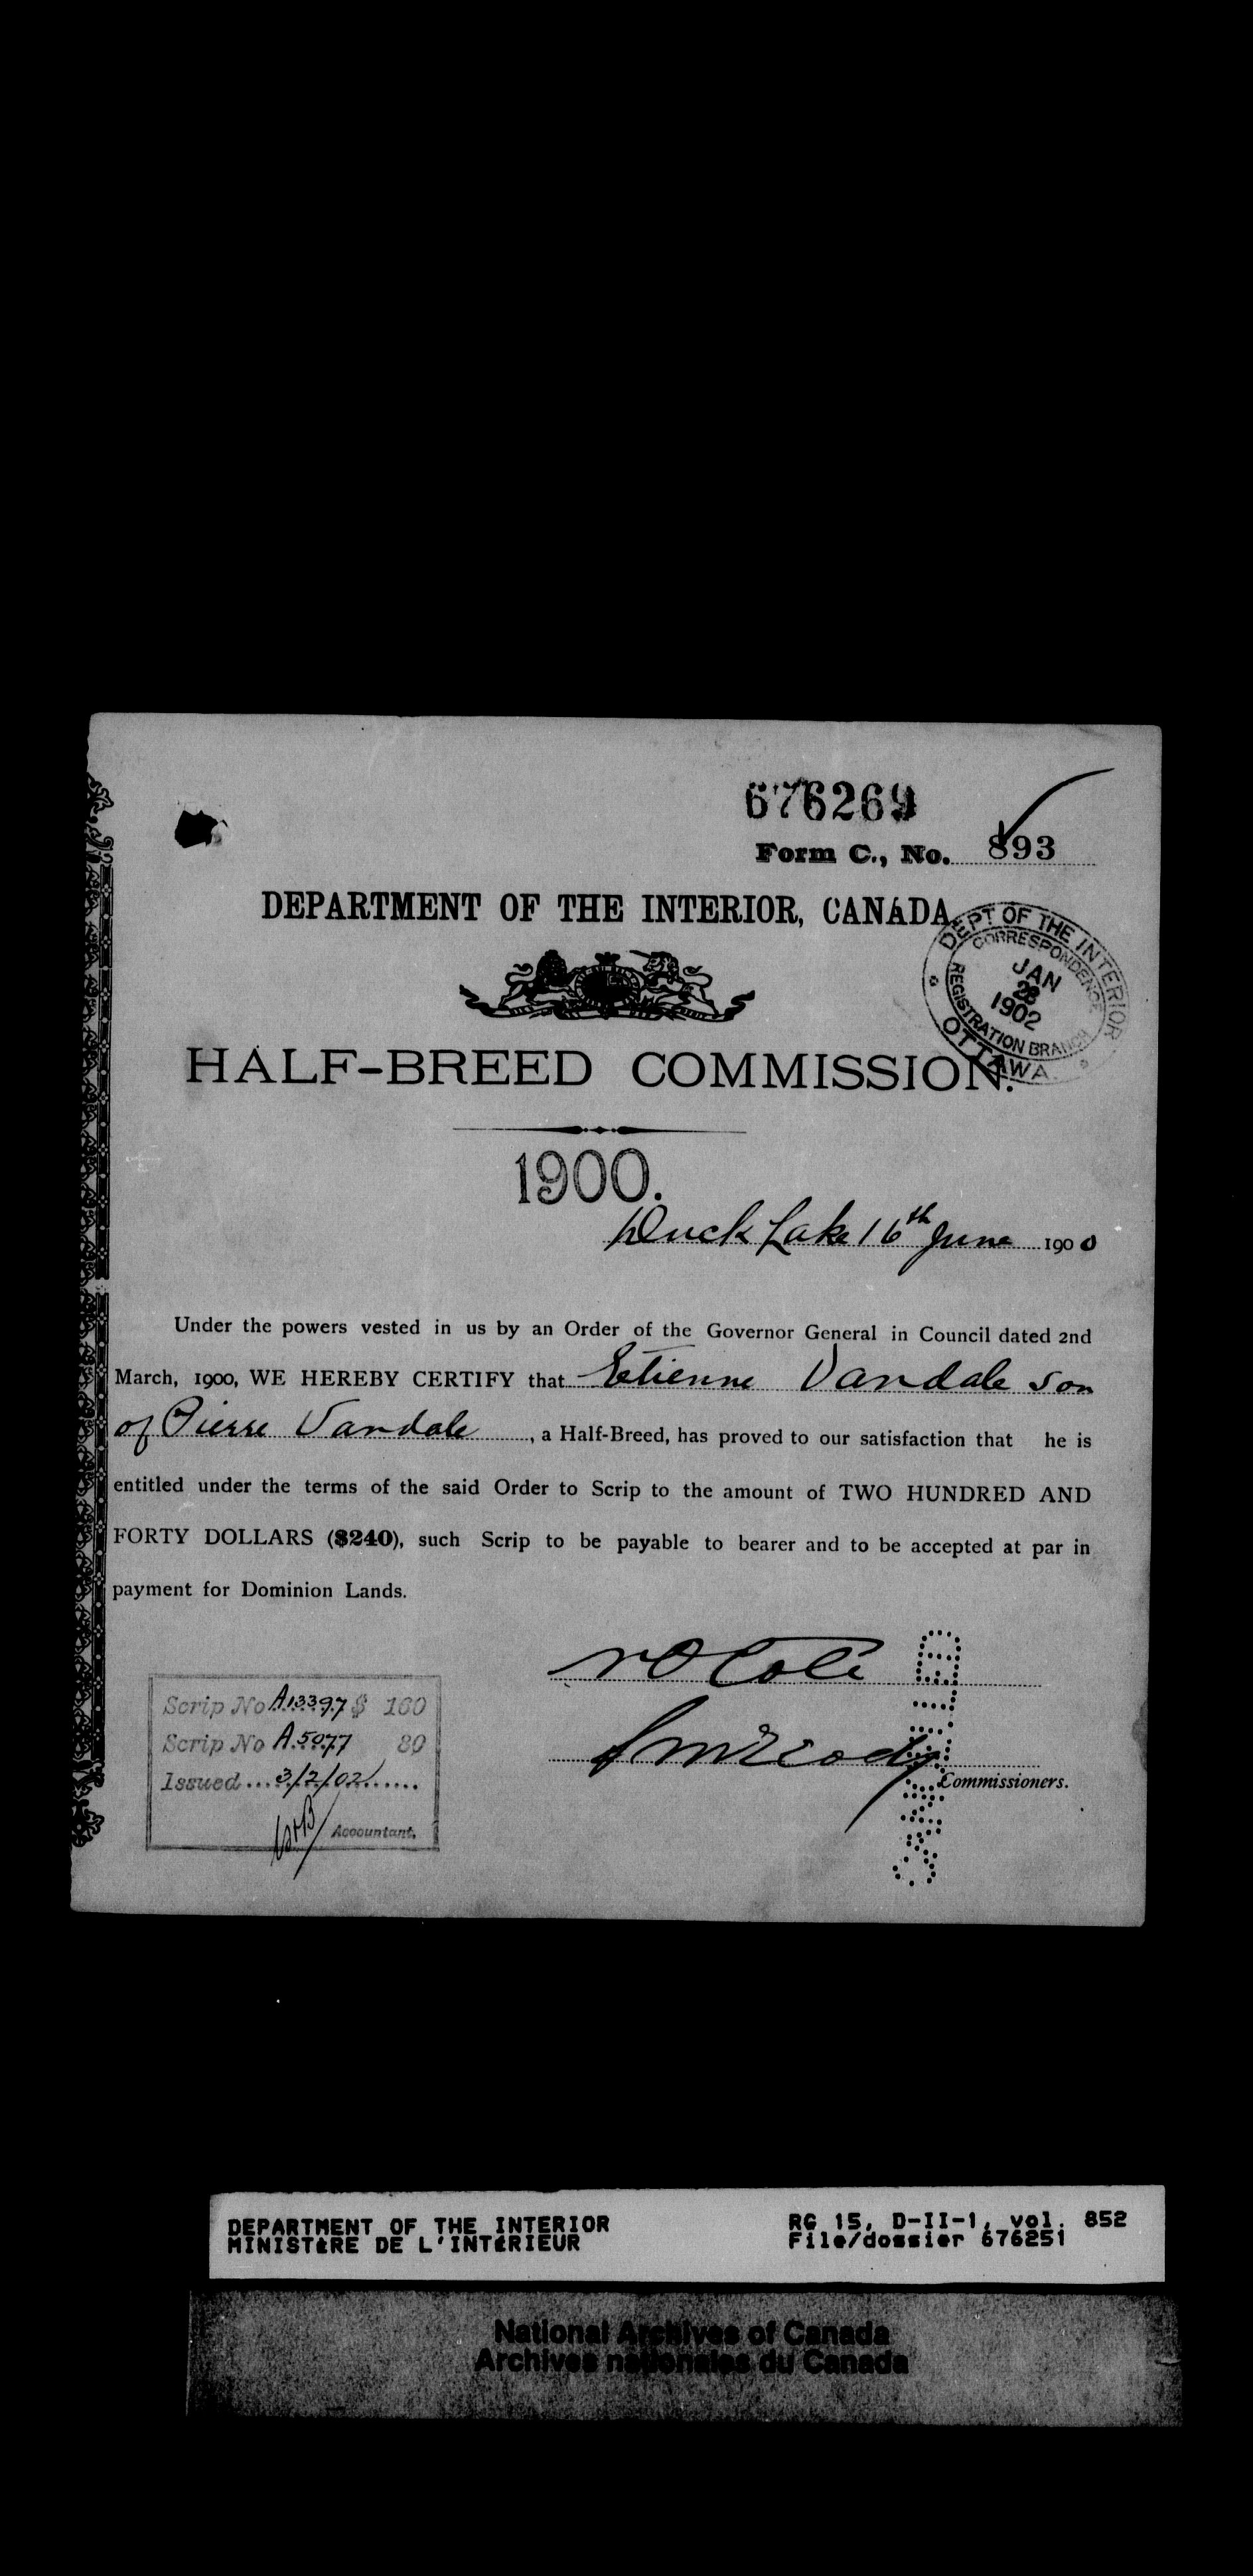 676269
Form C., No. 893
DEPARTMENT OF THE INTERIOR, CANADA
DEPT OF THE INTERIOR
CORRESPONDENCE
JAN
1902
REGISTRATION BRANCH
OTTAWA.
HALF-BREED COMMISSION.
1900.
Duck Lake 16th June 1900
Under the powers vested in us by an Order of the Governor General in Council dated 2nd
March, 1900, WE HEREBY CERTIFY that Etienne Vandale son
of Pierre Vandale, a Half-Breed, has proved to our satisfaction that he is
entitled under the terms of the said Order to Scrip to the amount of TWO HUNDRED AND
FORTY DOLLARS ($240), such Scrip to be payable to bearer and to be accepted at par in
payment for Dominion Lands.
Scrip No A13397 $ 160
Scrip No A5077 80
Issued ... 3/2/02 ......
Accountant.
Commissioners.
DEPARTMENT OF THE INTERIOR
MINISTÈRE DE L'INTÉRIEUR
RG 15, D-II-1, vol. 852
File/dossier 676251
National Archives of Canada
Archives nationales du Canada